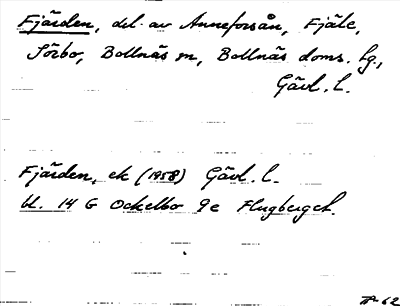 Fjärden, del av Anneforsån, Fjäle,
Sörbo, Bollnäs sn, Bollnäs doms. hg.,
Gävl. l.
Fjärden, ek (1958) Gävl. l.
bl. 14 G Ockelbo 9e Flugberget.
62